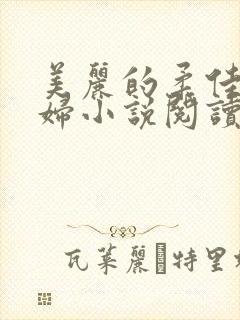 美麗的柔佳
婦小說閱讀
瓦萊麗·特里